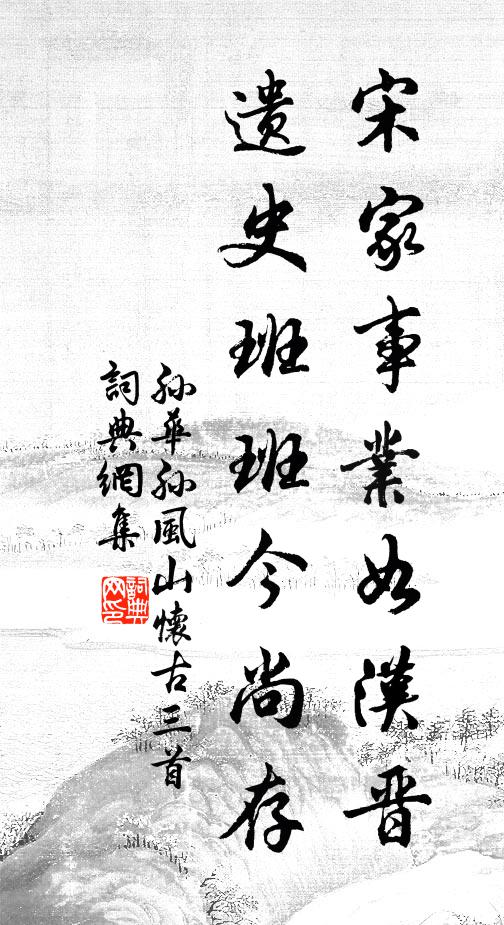 宋家事業如漢晋
遺史班班今尚存
孫華孫風山懷古三首
詞典網集
詞典